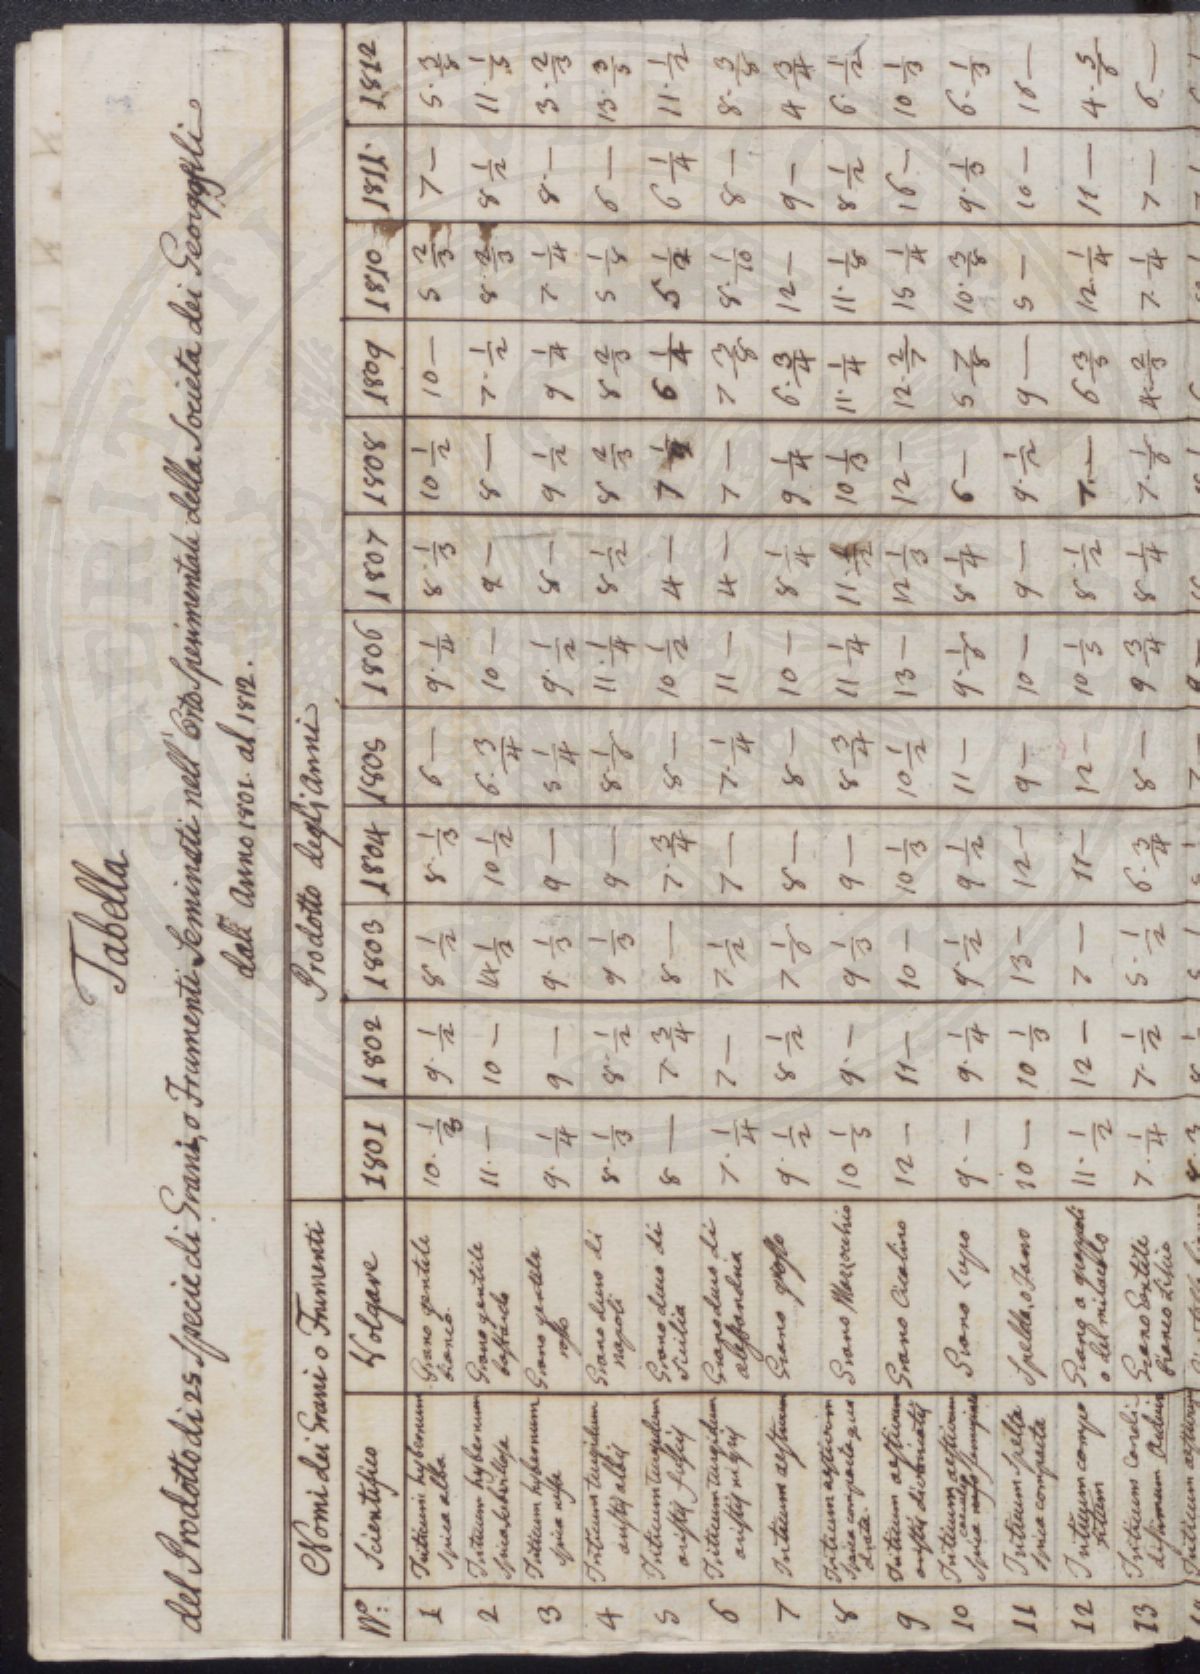 Tabella
del Prodotto di 25 Specie di Grani, o Frumenti Seminati nell'Orto Sperimentale della Società dei Georgofili
dall'Anno 1801. al 1812.
Nomi dei Grani o Frumenti Prodotto degl'Anni
N.º Scientifico Volgare 1801 1802 1803 1804 1805 1806 1807 1808 1809 1810 1811. 1812
1 Triticum hybernum spica alba Grano gentile bianco 10. 1/3 9. 1/2 8 1/2 8. 1/3 6 — 9. 1/4 8. 1/3 10 1/2 10 — 5 2/3 7 — 5. 3/8
2 Triticum hybernum Grano gentile bastardo 11. — 10 — 14 1/2 10 1/2 6. 3/4 10 — 9 — 8 — 7. 1/2 8. 2/3 8 1/2 11 1/5
3 Triticum hybernum spica Grano gentile rosso 9. 1/4 9 — 9. 1/3 9 — 5 1/4 9. 1/2 8 — 9 1/2 9 1/4 7. 1/4 8. — 3. 2/3
4 Triticum turgidum aristis albis Grano duro di Napoli 8. 1/3 8. 1/2 9 1/3 9 — 8. 1/8 11. 1/4 8 1/2 8 2/3 8 2/3 5 1/8 6 — 13. 3/5
5 Triticum turgidum aristis Grano duro di Sicilia 8 — 7. 3/4 8 — 7. 3/4 8 — 10 1/2 4 — 7 6 1/4 5 1/2 6 1/4 11. 1/2
6 Triticum turgidum aristis nigris Grano duro di Alessandria 7. 1/4 7 — 7. 1/2 7 — 7. 1/4 11 — 4 — 7 — 7 3/8 8. 1/10 8 — 8. 3/8
7 Triticum aestivum Grano grosso 9. 1/2 8 1/2 7 1/8 8 — 8 — 10 — 8 1/4 9 1/4 6. 3/4 12 — 9 — 4 3/4
8 Triticum aestivum spica composita Grano Mazzocchio 10 1/3 9. — 9 1/3 9 — 8 3/4 11 1/4 11. 1/2 10 1/3 11. 1/4 11. 1/8 8 1/2 6. 1/2
9 Triticum aestivum aristis divaricatis Grano Cicalino 12 — 11 — 10 — 10 1/3 10 1/2 13 — 12 1/3 12 — 12. 2/7 15 1/4 16 — 10 1/3
10 Triticum aestivum spica Grano Lupo 9. — 9. 1/4 9. 1/2 9 1/2 11 — 9. 1/8 8 1/4 6 — 5 7/8 10. 3/8 9. 1/3 6. 1/3
11 Triticum spelta spica composita Spelda, o Farro 10 — 10 1/3 13 — 12 — 9 — 10 — 9 — 9. 1/2 9 — 5 — 10 — 16 —
12 Triticum compositum Grano a grappoli o del miracolo 11. 1/2 12 — 7 — 11 — 12 — 10 1/5 8. 1/2 7. — 6 3/5 12. 1/4 11 — 4. 5/8
13 Triticum Grano Gentile bianco 7. 1/4 7. 1/2 5. 1/2 6. 3/4 8 — 9 3/4 8 1/4 7. 1/8 4. 2/3 7. 1/4 7 — 6. —